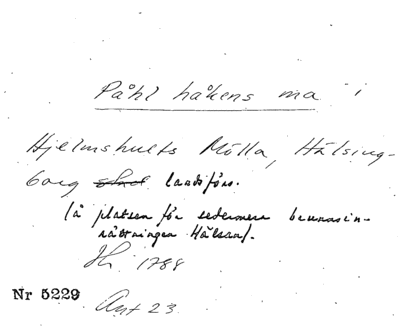 Påhl håkens ma i
Hjelmshults Mölla, Hälsing-
borg slad landsförs.
(å platsen för sedermera brunnsin-
rättningen Hälsan).
Hi 1788
Nr 5229
Ant 23